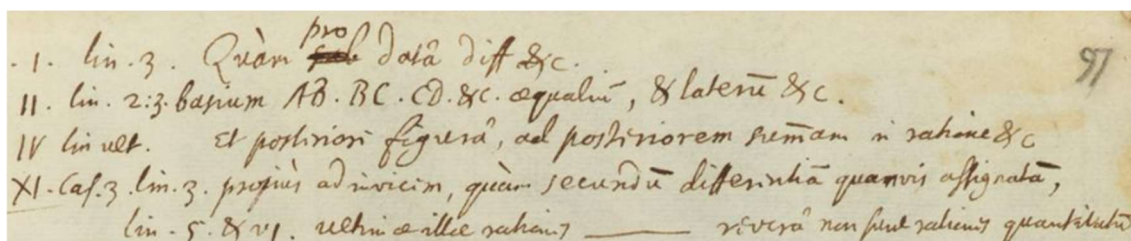 . I. lin. 3. Quàm pro datâ diff &c.
97
II. lin. 2:3. basium AB. BC. CD. &c. æqualiũ, & laterũ &c.
IV lin ult. Et posteriori figurâ, ad posteriorem sum̃am in ratione &c
XI. Cas. 3. lin. 3. propiùs ad invicem, quàm secundũ differentiã quamvis assignatã,
lin. 5. & VI. ultimæ illæ rationes ——— reverâ non sunt rationes quantitatũ